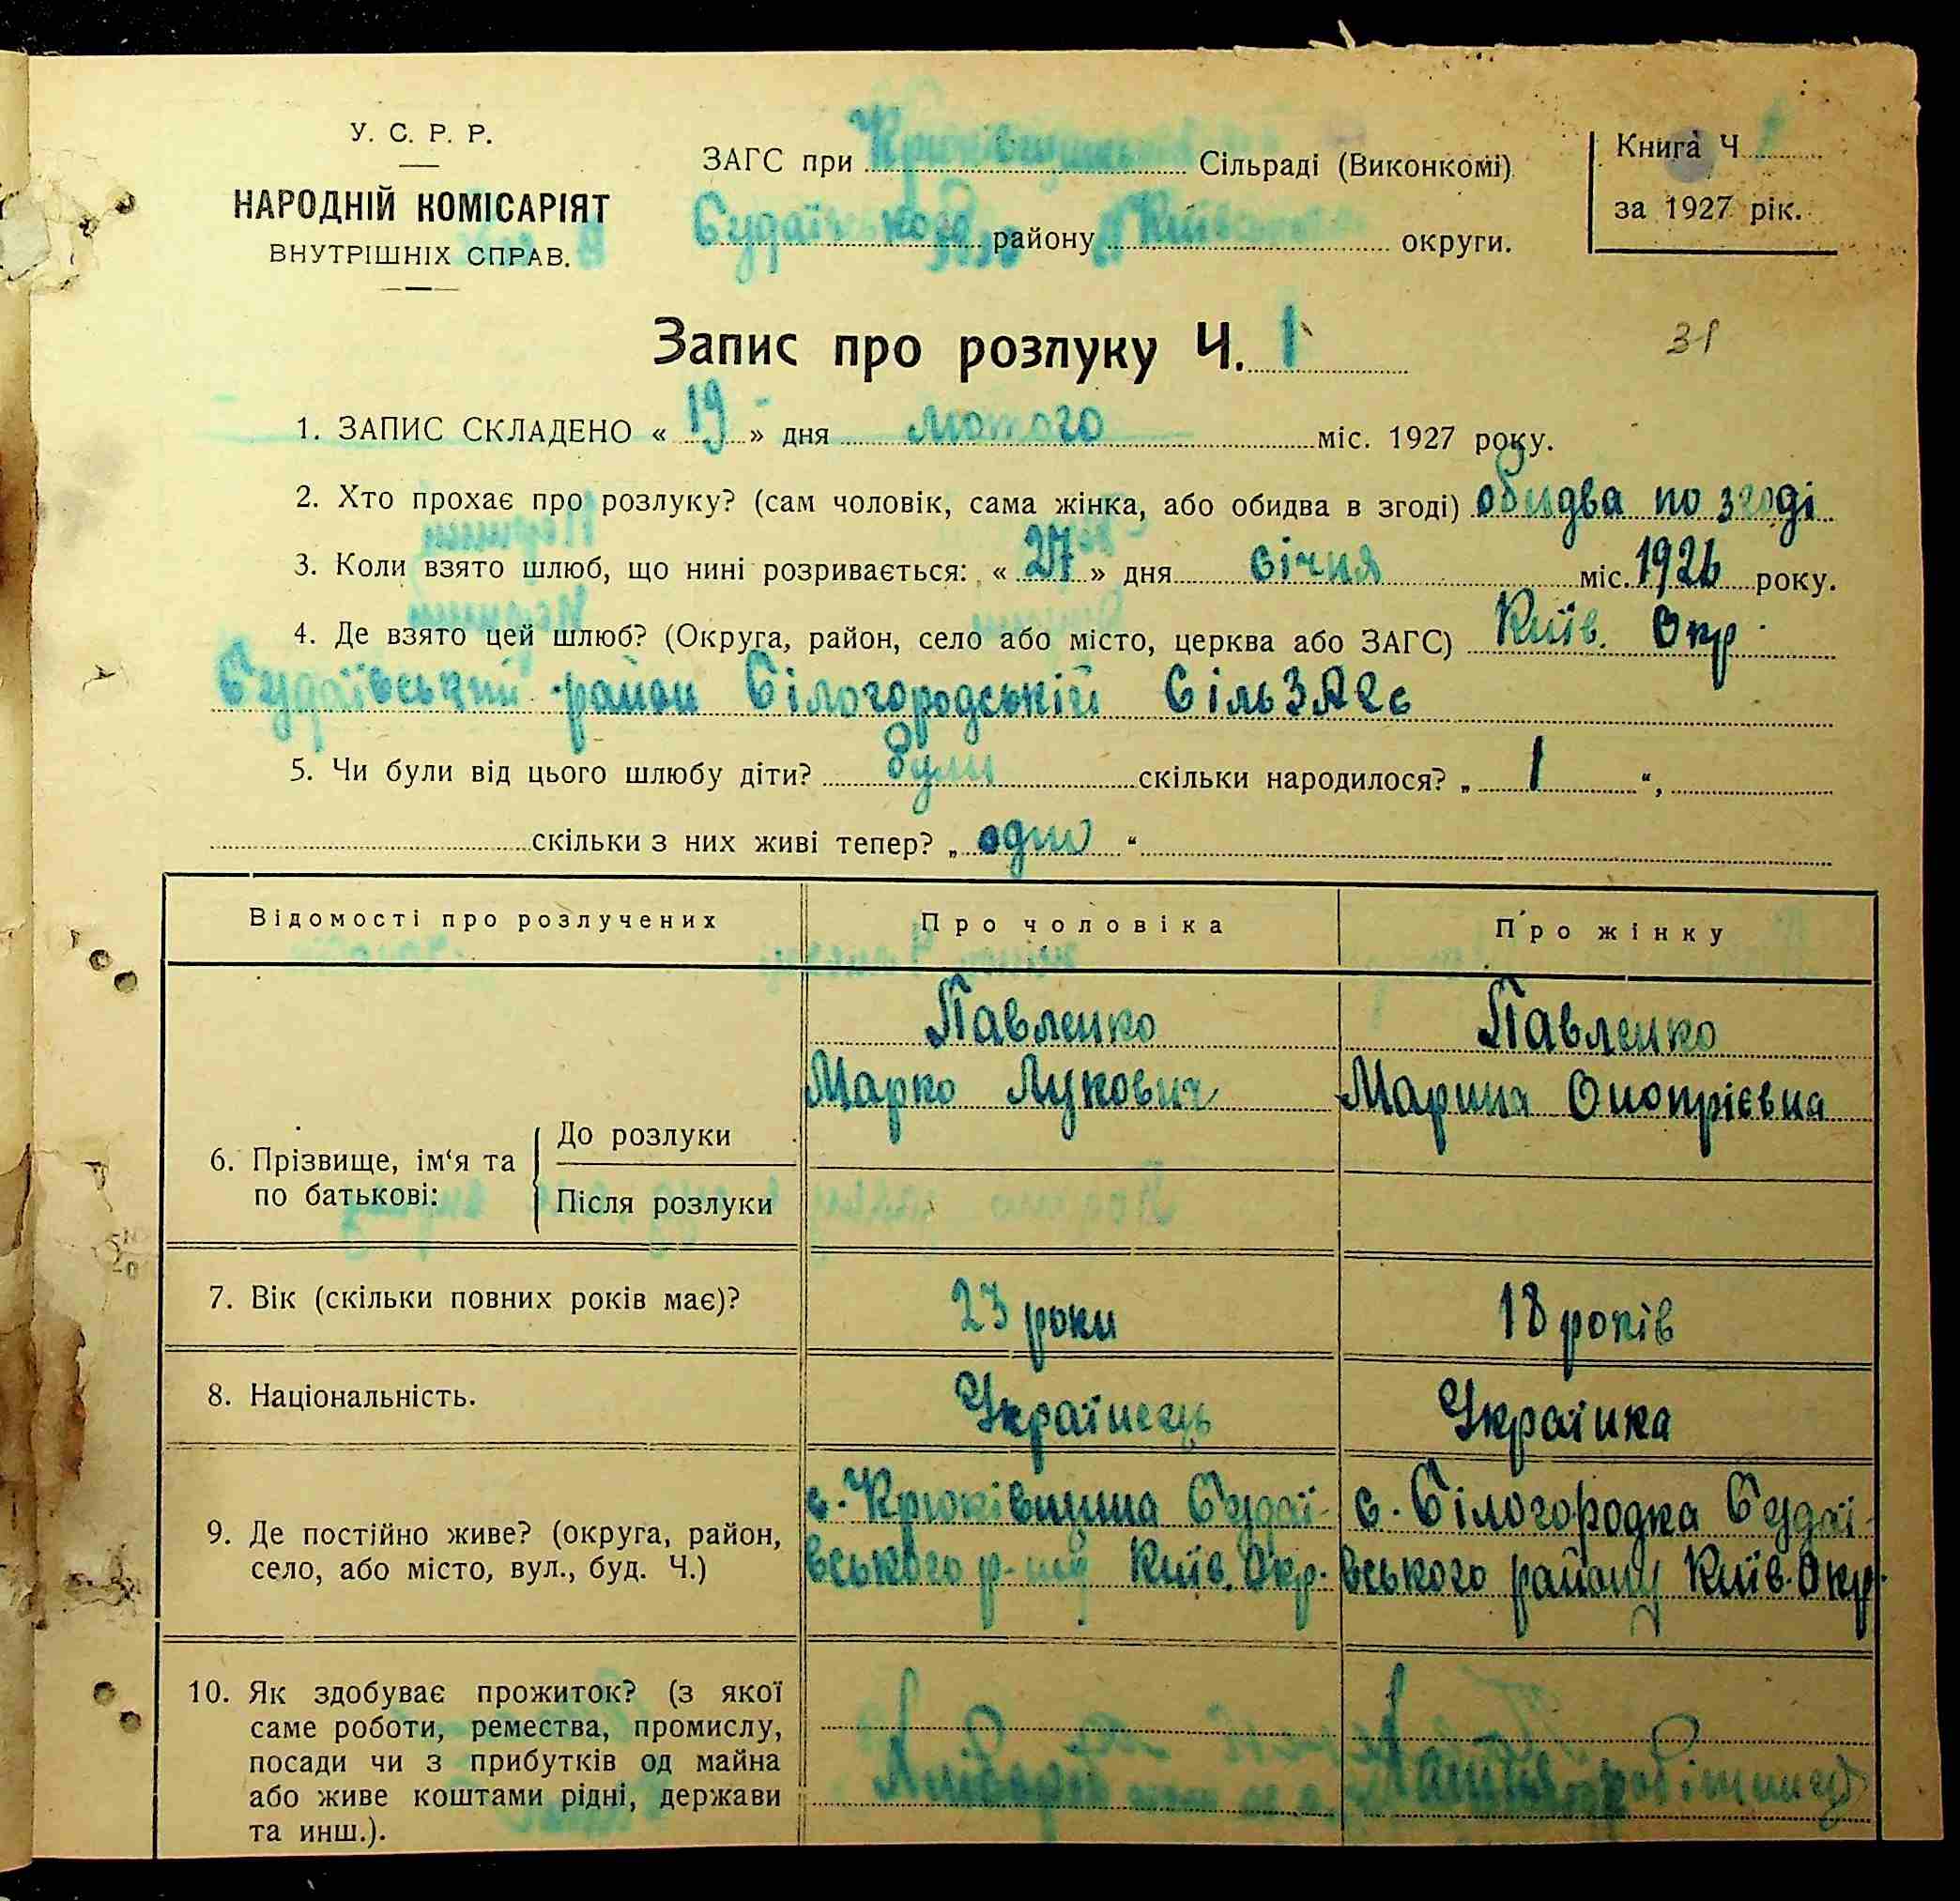 У. С. Р. Р.
НАРОДНІЙ КОМІСАРІЯТ
ВНУТРІШНІХ СПРАВ.
ЗАГС при Сільраді (Виконкомі)
району Київської округи.
Книга Ч
за 1927 рік.
31
Запис про розлуку Ч. 1
1. ЗАПИС СКЛАДЕНО « 19 » дня лютого міс. 1927 року.
2. Хто прохає про розлуку? (сам чоловік, сама жінка, або обидва в згоді) обидва по згоді
3. Коли взято шлюб, що нині розривається: « 27 » дня січня міс. 1926 року.
4. Де взято цей шлюб? (Округа, район, село або місто, церква або ЗАГС) Київ. Окр.
Будаївський район Білогородській СільЗАГС
5. Чи були від цього шлюбу діти? були скільки народилося? „ 1 “,
скільки з них живі тепер? „ одно “
Відомості про розлучених Про чоловіка Про жінку
Павленко Павленко
Марко Лукович Марина Онопрієвна
6. Прізвище, ім‘я та по батькові: До розлуки
Після розлуки
7. Вік (скільки повних років має)? 23 роки 18 років
8. Національність. Українець Українка
9. Де постійно живе? (округа, район, село, або місто, вул., буд. Ч.)
с. Крюківщина Будаї-
вського р-ну Київ. Окр.
с. Білогородка Будаї-
вського району Київ. Окр.
10. Як здобуває прожиток? (з якої
саме роботи, ремества, промислу,
посади чи з прибутків од майна
або живе коштами рідні, держави
та инш.).